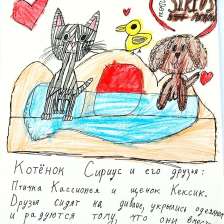 SIRIUS
Котёнок Сириус и его друзья:
Птичка Кассиопея и щенок Кексик.
Друзья сидят на диване, укрылись одеялом
и радуются тому, что они вместе